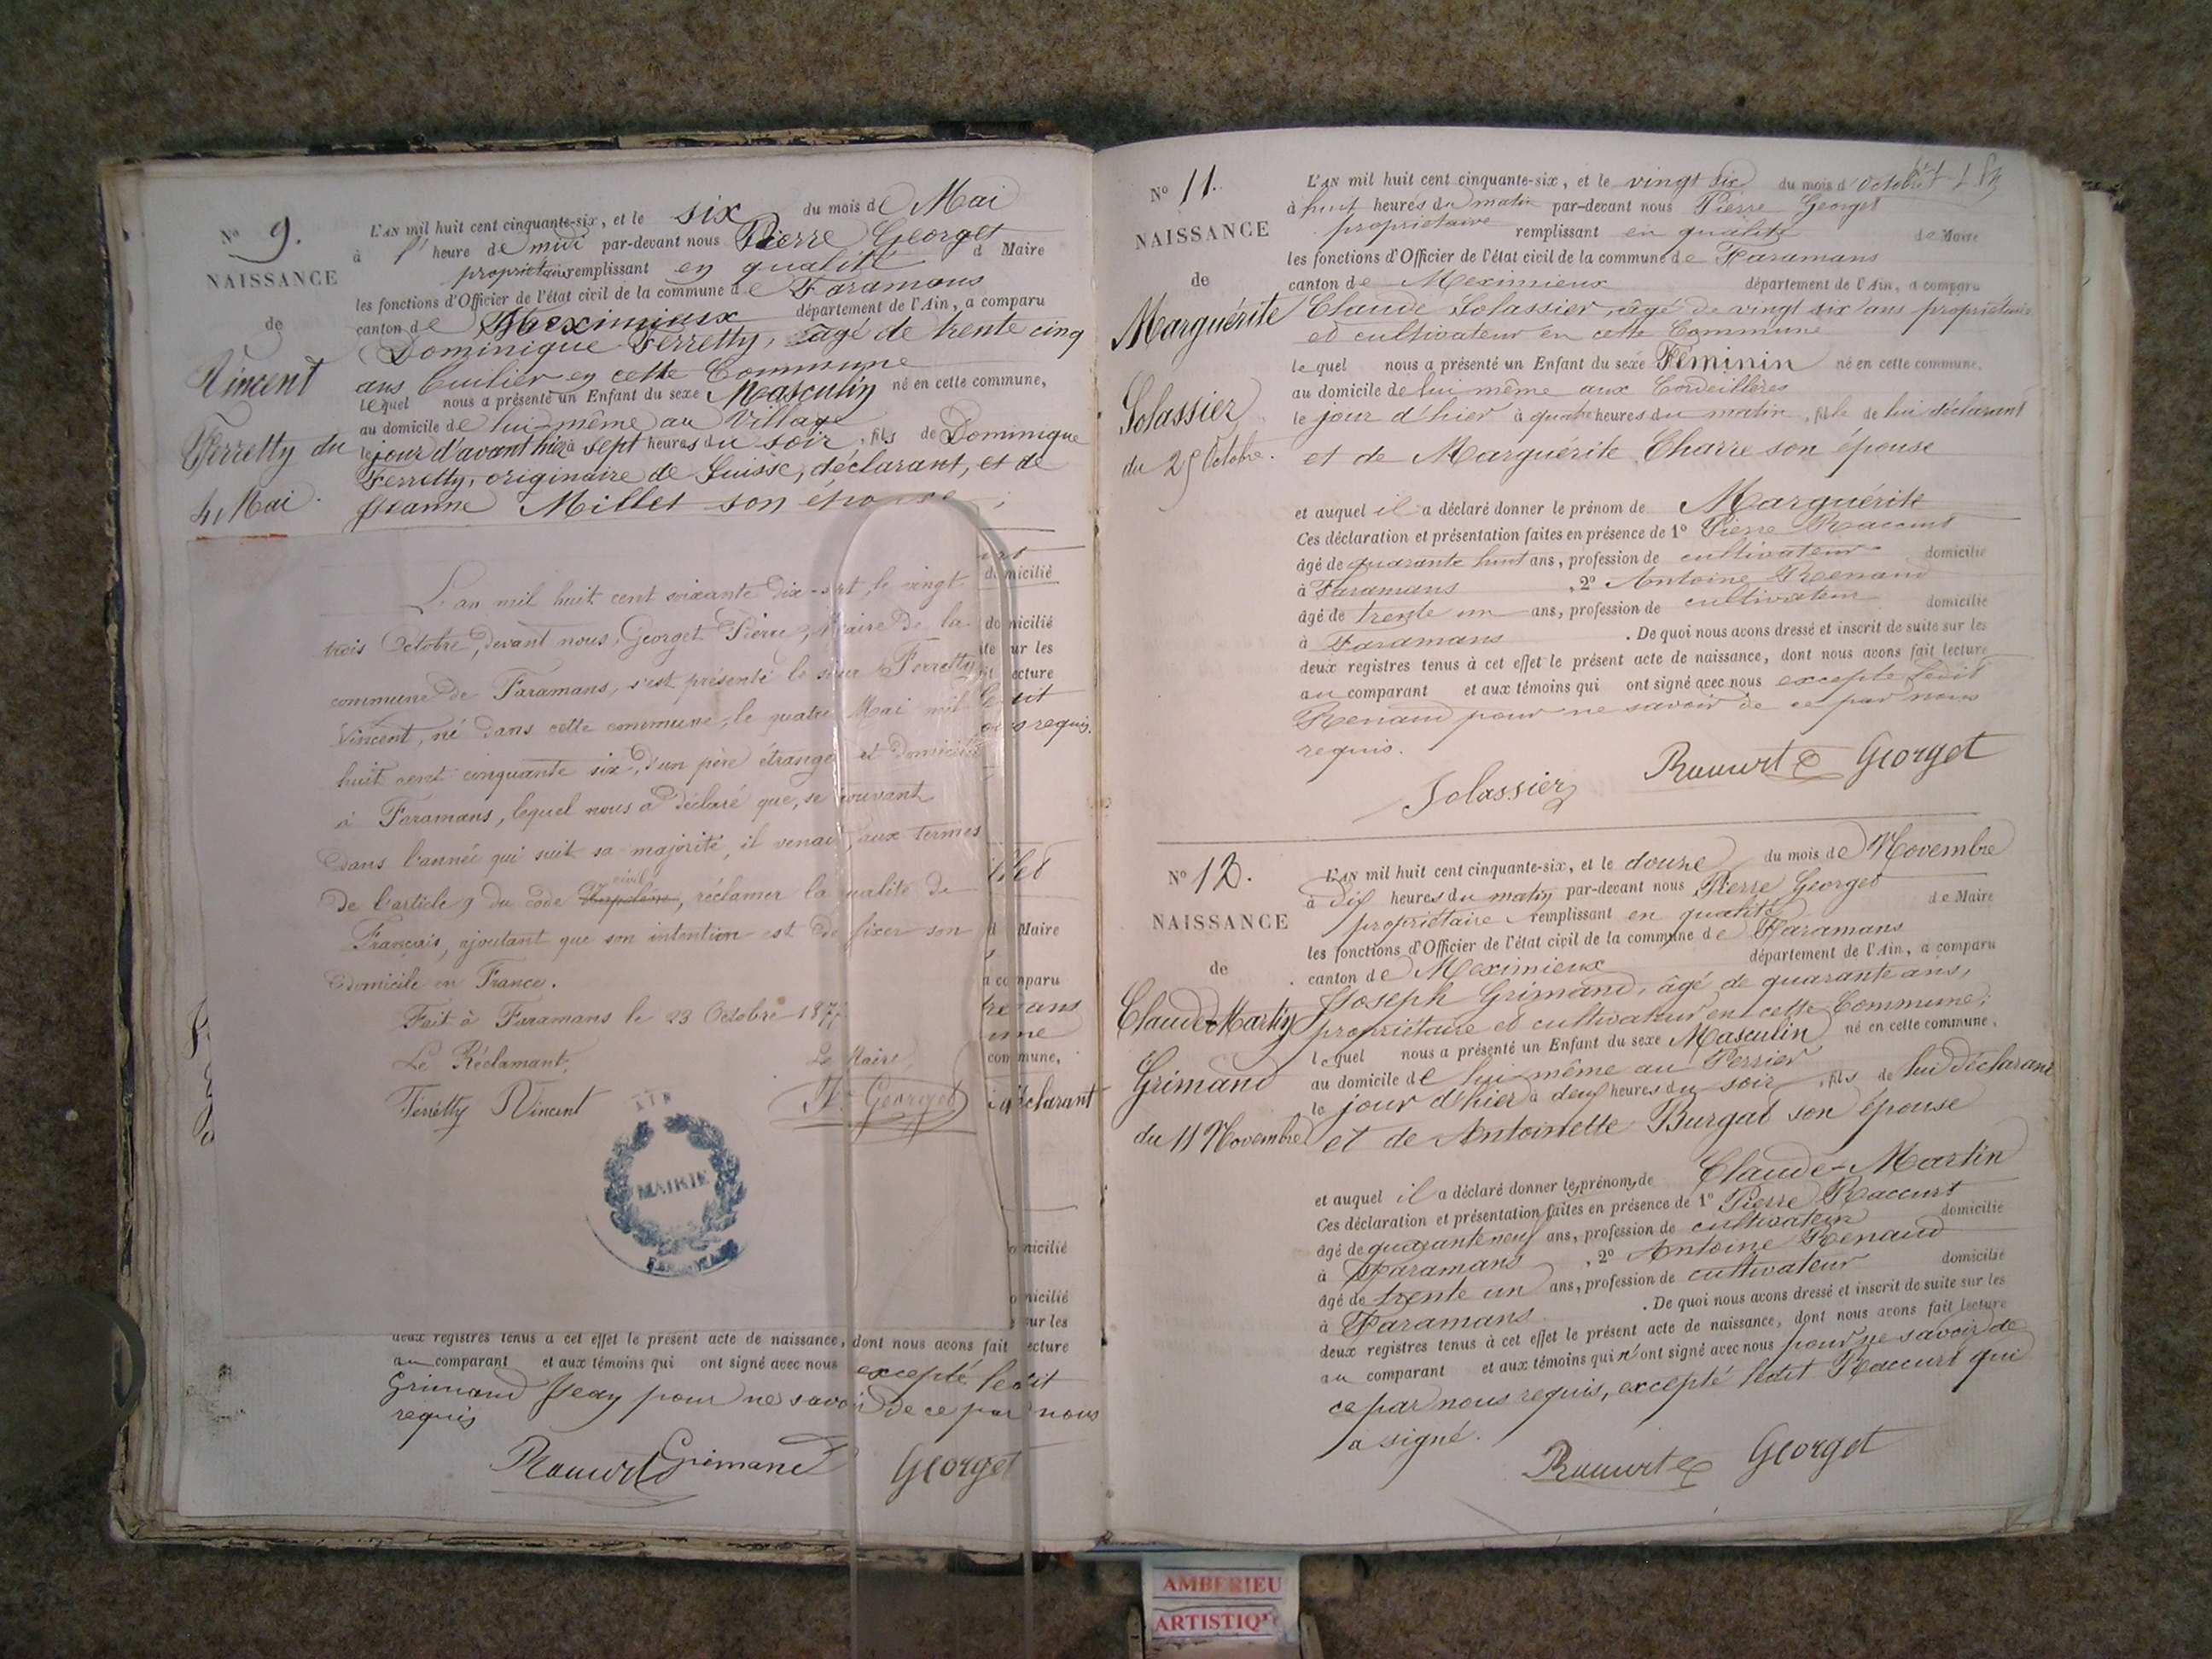 N° 9.
NAISSANCE
de
Vincent
Ferretty du
4 Mai.
L'AN mil huit cent cinquante-six, et le six du mois de Mai
à l' heure de midi par-devant nous Pierre Georget
propriétaire remplissant en qualité d Maire
les fonctions d'Officier de l'état civil de la commune de Faramans
canton de Meximieux département de l'Ain, a comparu
Dominique Ferretty, âgé de trente cinq
ans tuilier en cette Commune
lequel nous a présenté un Enfant du sexe Masculin né en cette commune,
au domicile de lui-même au Village
le jour d'avant hier à sept heures du soir, fils de Dominique
Ferretty, originaire de Suisse, déclarant, et de
Jeanne Millet son épouse ;
L'an mil huit cent soixante dix-sept, le vingt
trois Octobre, devant nous, Georget Pierre, Maire de la
commune de Faramans, s'est présenté le sieur Ferretty
Vincent, né dans cette commune, le quatre Mai mil
huit cent cinquante six, d'un père étranger et domicilié
à Faramans, lequel nous a déclaré que, se trouvant
dans l'année qui suit sa majorité, il venait, aux termes
de l'article 9 du code civil, réclamer la qualité de
Français, ajoutant que son intention est de fixer son
domicile en France.
Fait à Faramans le 23 Octobre 1877
Le Réclamant, Le Maire,
Ferretty Vincent Georget
MAIRIE
domicilié
domicilié
ur les
ecture
requis.
Maire
a comparu
ans
commune,
déclarant
omicilié
omicilié
sur les
deux registres tenus à cet effet le présent acte de naissance, dont nous avons fait lecture
au comparant et aux témoins qui ont signé avec nous excepté ledit
Grimand Jean pour ne savoir de ce par nous
requis
Raccurt Grimand Georget
N° 11.
NAISSANCE
de
Marguérite
Solassier
du 25 Octobre.
L'AN mil huit cent cinquante-six, et le vingt six du mois d'Octobre
à huit heures du matin par-devant nous Pierre Georget
propriétaire remplissant en qualité de Maire
les fonctions d'Officier de l'état civil de la commune de Faramans
canton de Meximieux département de l'Ain, a comparu
Claude Solassier, âgé de vingt six ans propriétaire
et cultivateur en cette Commune
lequel nous a présenté un Enfant du sexe Féminin né en cette commune,
au domicile de lui même aux Cordeillères
le jour d'hier à quatre heures du matin, fille de lui déclarant
et de Marguérite Charre son épouse
et auquel il a déclaré donner le prénom de Marguérite
Ces déclaration et présentation faites en présence de 1° Pierre Raccurt
âgé de quarante huit ans, profession de cultivateur domicilié
à Faramans, 2° Antoine Renaud
âgé de trente un ans, profession de cultivateur domicilié
à Faramans. De quoi nous avons dressé et inscrit de suite sur les
deux registres tenus à cet effet le présent acte de naissance, dont nous avons fait lecture
au comparant et aux témoins qui ont signé avec nous excepté ledit
Renaud pour ne savoir de ce par nous
requis.
Solassier Raccurt Georget
N° 12.
NAISSANCE
de
Claude-Martin
Grimand
du 11 Novembre
L'AN mil huit cent cinquante-six, et le douze du mois de Novembre
à dix heures du matin par-devant nous Pierre Georget
propriétaire remplissant en qualité de Maire
les fonctions d'Officier de l'état civil de la commune de Faramans
canton de Meximieux département de l'Ain, a comparu
Joseph Grimand, âgé de quarante ans,
propriétaire et cultivateur en cette Commune;
lequel nous a présenté un Enfant du sexe Masculin né en cette commune,
au domicile de lui même au Perrier
le jour d'hier à deux heures du soir, fils de lui déclarant
et de Antoinette Burgat son épouse
et auquel il a déclaré donner les prénoms de Claude-Martin
Ces déclaration et présentation faites en présence de 1° Pierre Raccurt
âgé de quarante neuf ans, profession de cultivateur domicilié
à Faramans, 2° Antoine Renaud
âgé de trente un ans, profession de cultivateur domicilié
à Faramans. De quoi nous avons dressé et inscrit de suite sur les
deux registres tenus à cet effet le présent acte de naissance, dont nous avons fait lecture
au comparant et aux témoins qui n'ont signé avec nous pour ne savoir de
ce par nous requis, excepté ledit Raccurt qui
a signé.
Raccurt Georget
AMBERIEU
ARTISTIQ'